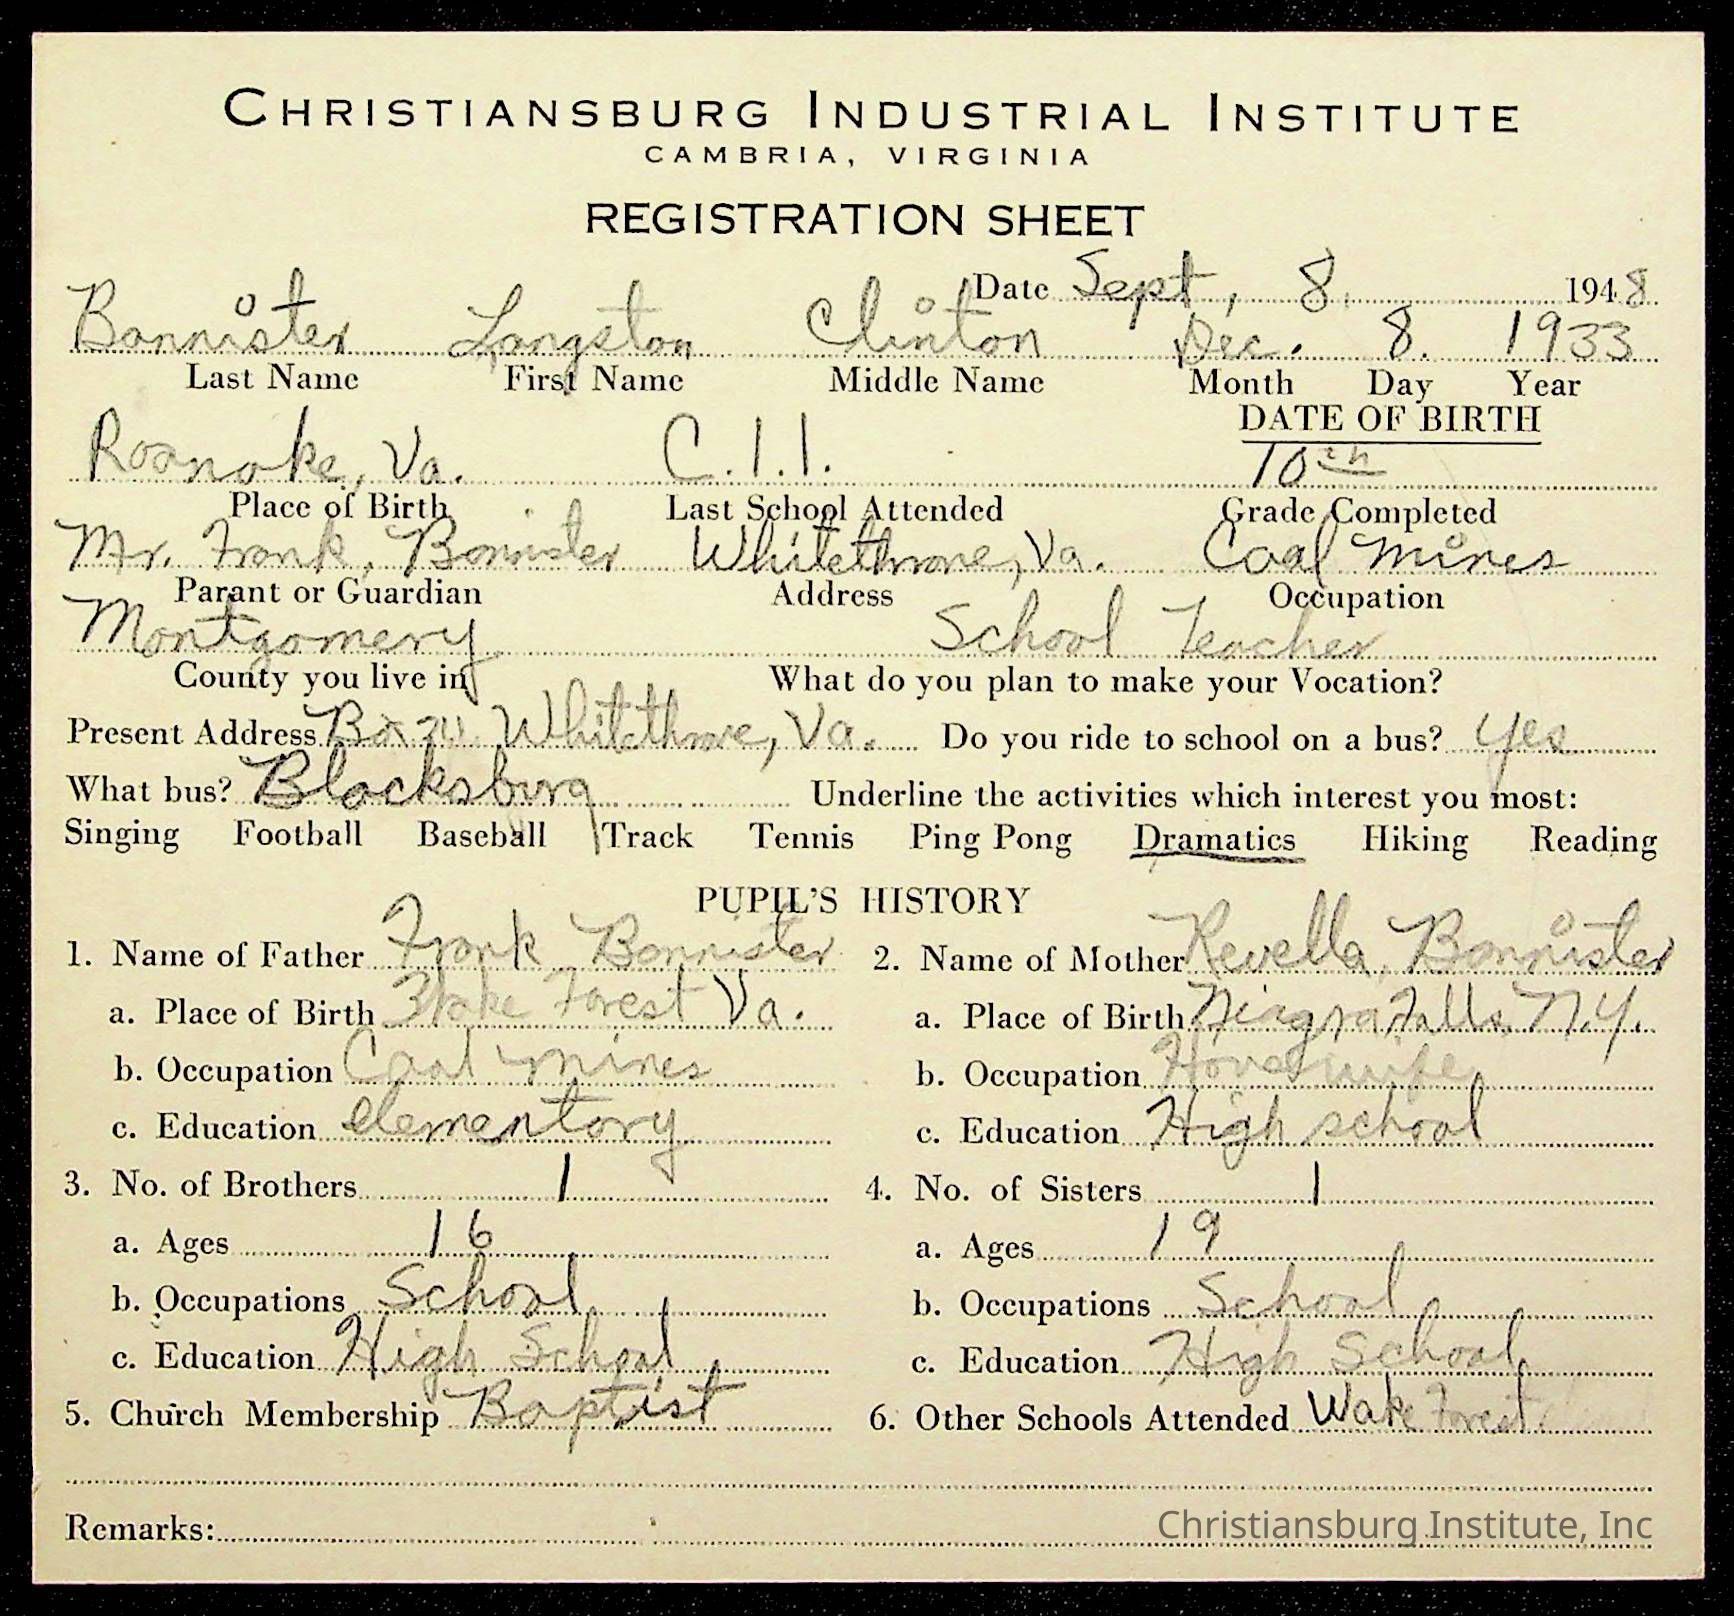 CHRISTIANSBURG INDUSTRIAL INSTITUTE
CAMBRIA, VIRGINIA
REGISTRATION SHEET
Date Sept, 8, 1948
Bannister Langston Clinton Dec. 8. 1933
Last Name First Name Middle Name Month Day Year
DATE OF BIRTH
Roanoke, Va. C.I.I. 10th
Place of Birth Last School Attended Grade Completed
Mr. Frank, Bannister Whitethrone, Va. Coal mines
Parant or Guardian Address Occupation
Montgomery School Teacher
County you live in What do you plan to make your Vocation?
Present Address Box Whitethrone, Va. Do you ride to school on a bus? Yes
What bus? Blacksburg Underline the activities which interest you most:
Singing Football Baseball Track Tennis Ping Pong Dramatics Hiking Reading
PUPIL'S HISTORY
1. Name of Father Frank Bannister 2. Name of Mother Revella Bannister
a. Place of Birth Wake Forest Va. a. Place of Birth Niagra Falls, N.Y.
b. Occupation Coal mines b. Occupation Housewife
c. Education elementary c. Education High school
3. No. of Brothers 1 4. No. of Sisters 1
a. Ages 16 a. Ages 19
b. Occupations School b. Occupations School
c. Education High School c. Education High School
5. Church Membership Baptist 6. Other Schools Attended Wake Forest
Remarks: Christiansburg Institute, Inc